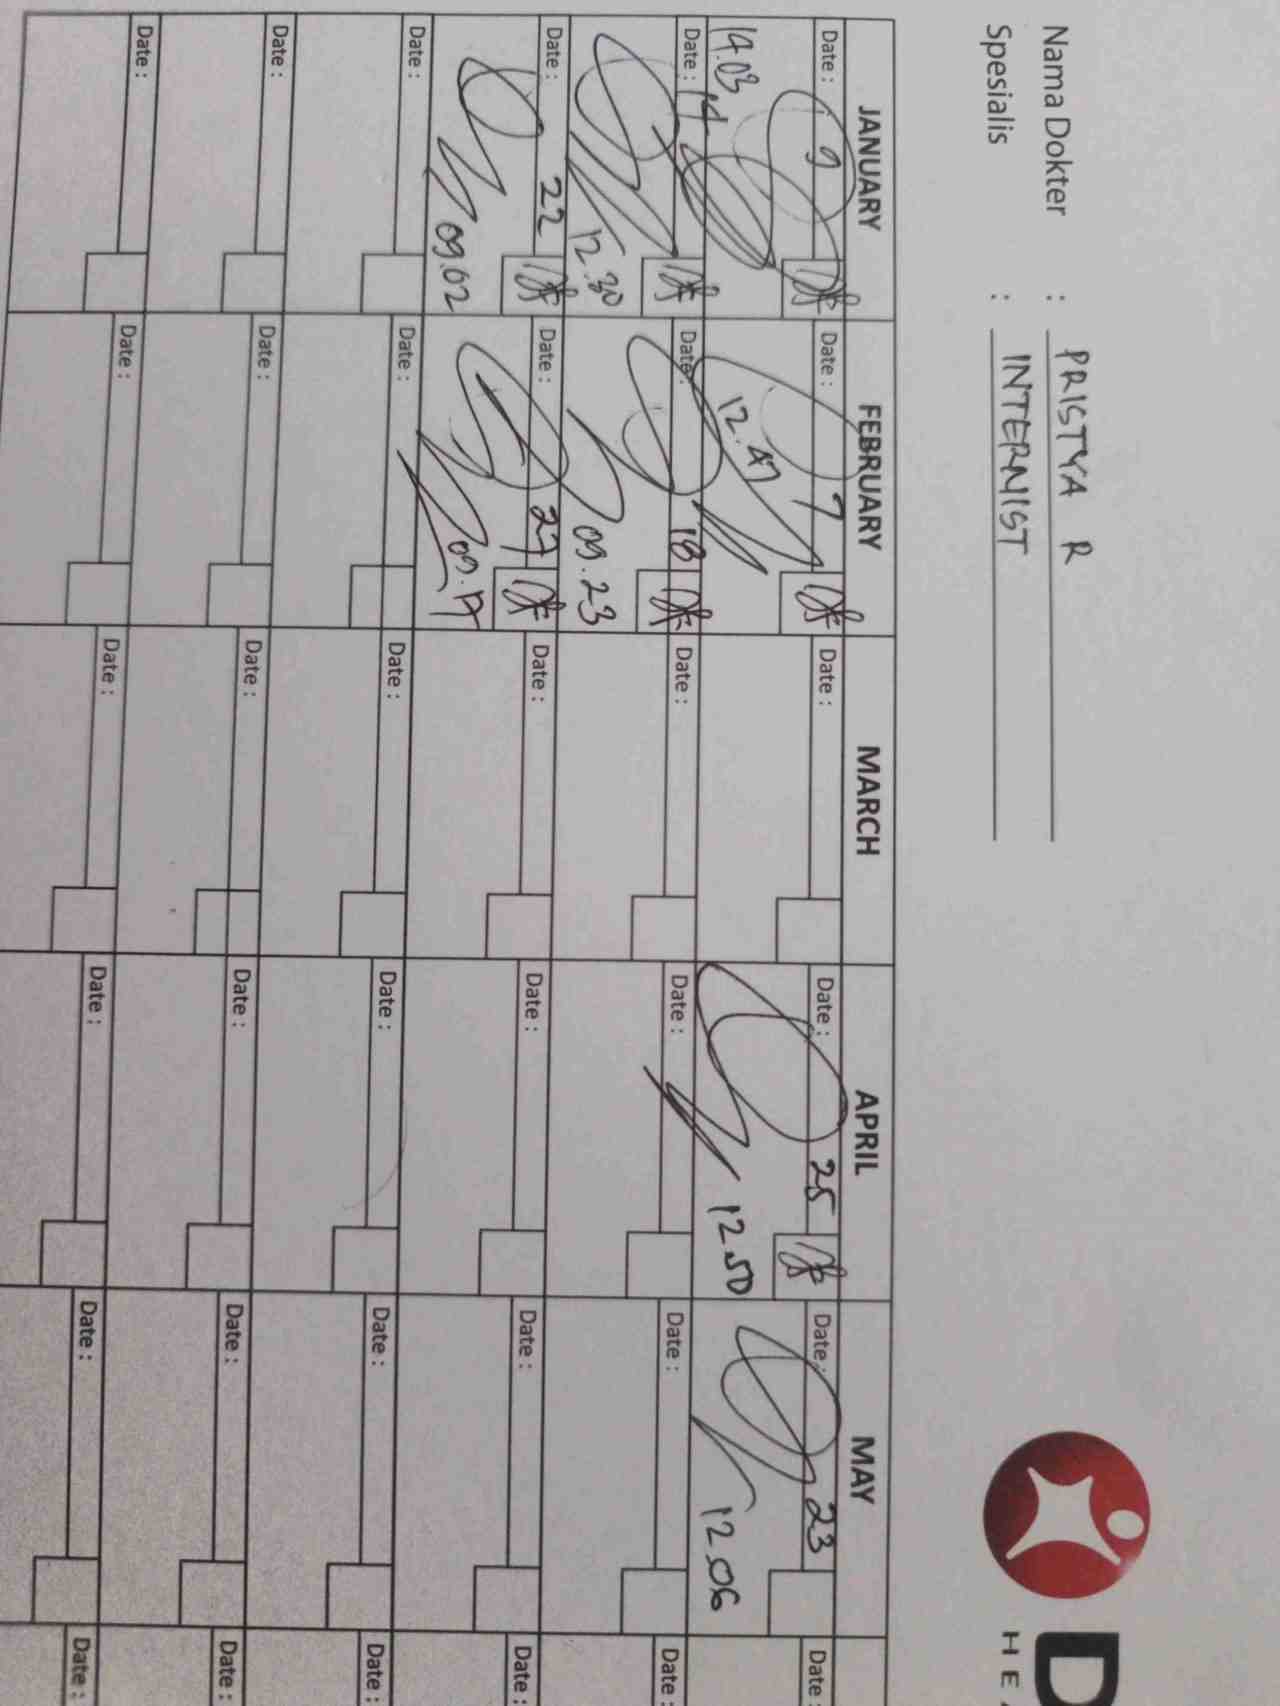 Nama Dokter : PRISTYA R
Spesialis : INTERNIST
D
HEA
JANUARY FEBRUARY MARCH APRIL MAY
Date : 9 Date : 7 Date : Date : 25 Date : 23 Date :
14.03 12.47 12.50 12.06
Date : 14 Date : 18 Date : Date : Date : Date :
12.30 09.23
Date : 22 Date : 27 Date : Date : Date : Date :
09.02 09.17
Date : Date : Date : Date : Date : Date :
Date : Date : Date : Date : Date : Date :
Date : Date : Date : Date : Date : Date :